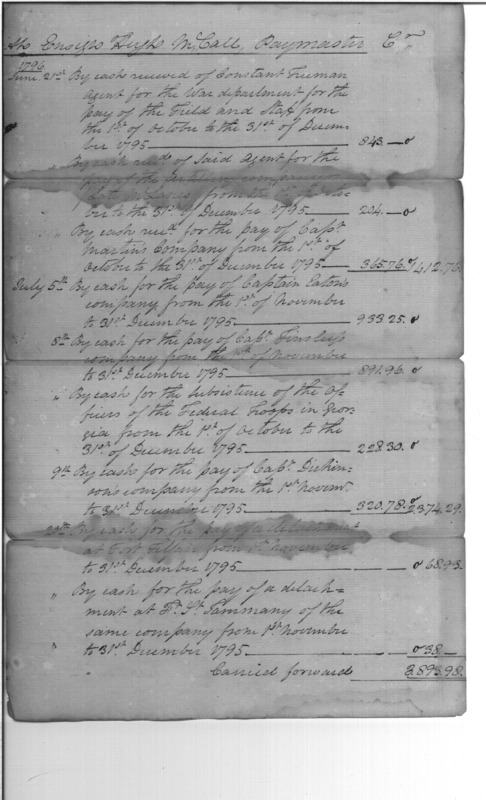 Ensign Hugh McCall, Paymaster Cr
1796
June 21st By cash received of Constant Freeman
Agent for the War department for the
pay of the Field and Staff from
the 1st of Octobe to the 31st of Decem-
ber 1795 843 —
" By cash recd of said Agent for the
pay of the
from the 1st
ber to the 31st of December 1795 204 —
" By cash recd for the pay of Capt
Martins Company from the 1st of
Octobe to the 31st of December 1795 365.76 1412.76
July 5th By cash for the pay of Captain Eatons
company from the 1st of November
to 31st December 1795 933.25
8th By cash for the pay of Capt Tinsleys
company from the 1st of Novembe
to 31st December 1795 891.96
" By cash for the subsistence of the Of-
ficers of the Federal Troops in Geor-
gia from the 1st of October to the
31st of December 1795 228.30
9th By cash for the pay of Capt Dickin-
son's company from the 1st Novem.
to 31st December 1795 320.78 2374.29
By cash for the pay of a
at Fort from 1st November
to 31st December 1795 68.93
" By cash for the pay of a detach-
ment at Ft St Tammany of the
same company from 1st Novembe
" to 31st December 1795 38 —
Carried forward 3.893.98